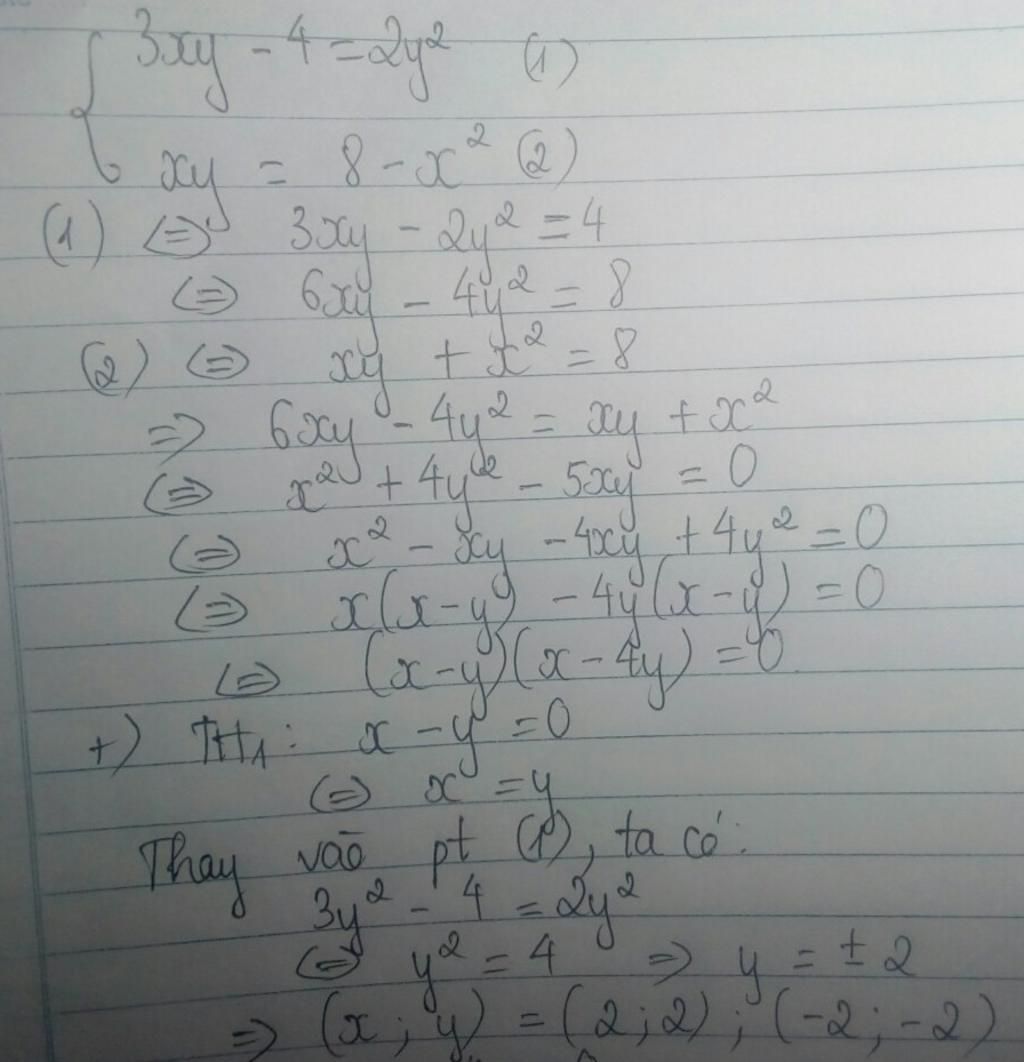 { 3xy - 4 = 2y² (1)
xy = 8 - x² (2)
(1) ⇔ 3xy - 2y² = 4
⇔ 6xy - 4y² = 8
(2) ⇔ xy + x² = 8
⇒ 6xy - 4y² = xy + x²
⇔ x² + 4y² - 5xy = 0
⇔ x² - xy - 4xy + 4y² = 0
⇔ x(x-y) - 4y(x-y) = 0
⇔ (x-y)(x-4y) = 0
+) TH1: x - y = 0
⇔ x = y
Thay vào pt (1), ta có:
3y² - 4 = 2y²
⇔ y² = 4 ⇒ y = ± 2
⇒ (x; y) = (2; 2); (-2; -2)